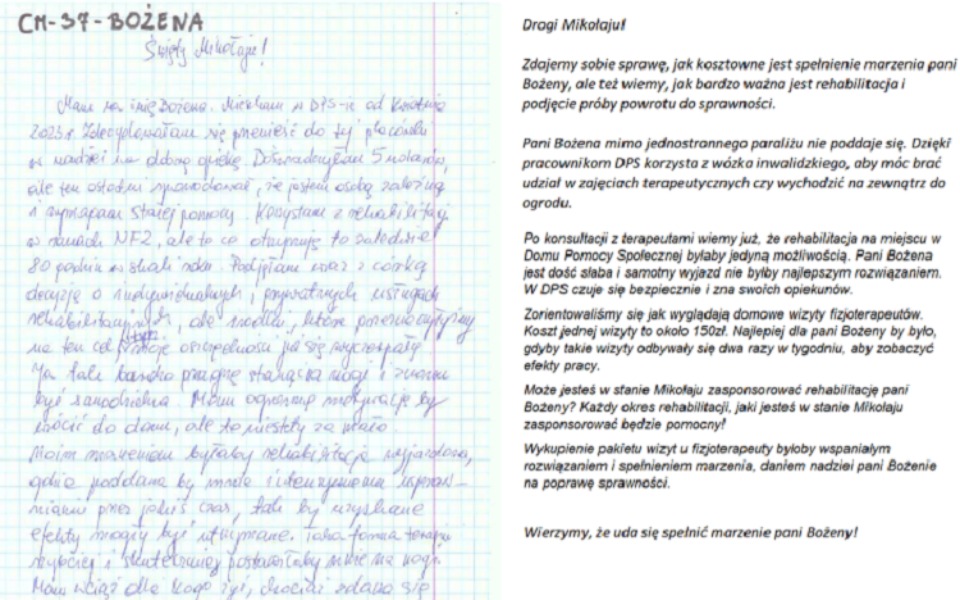 CM-37-BOŻENA
Święty Mikołaju!
Mam na imię Bożena. Mieszkam w DPS-ie od kwietnia
2023r. Zdecydowałam się przenieść do tej placówki
w nadziei na dobrą opiekę. Doświadczyłam 5 udarów,
ale ten ostatni spowodował, że jestem osobą zależną
i wymagam stałej pomocy. Korzystam z rehabilitacji
w ramach NFZ, ale to co otrzymuję to zaledwie
80 godzin w skali roku. Podjęłam wraz z córką
decyzję o indywidualnych, prywatnych usługach
rehabilitacyjnych, ale środki, które
na ten cel moje oszczędności już się wyczerpały
Ja tak bardzo pragnę stanąć na nogi i znowu
być samodzielna. Mam ogromną motywację by
wrócić do domu, ale to niestety za mało.
Moim marzeniem byłaby rehabilitacja wyjazdowa,
gdzie poddana by mnie intensywnemu
przez jakiś czas, tak by uzyskane
efekty mogły być utrzymane. Taka forma terapii
szybciej i skuteczniej postawiłaby mnie na nogi.
Mam wciąż dla kogo żyć, chociaż zdaję się
Drogi Mikołaju!
Zdajemy sobie sprawę, jak kosztowne jest spełnienie marzenia pani
Bożeny, ale też wiemy, jak bardzo ważna jest rehabilitacja i
podjęcie próby powrotu do sprawności.
Pani Bożena mimo jednostronnego paraliżu nie poddaje się. Dzięki
pracownikom DPS korzysta z wózka inwalidzkiego, aby móc brać
udział w zajęciach terapeutycznych czy wychodzić na zewnątrz do
ogrodu.
Po konsultacji z terapeutami wiemy już, że rehabilitacja na miejscu w
Domu Pomocy Społecznej byłaby jedyną możliwością. Pani Bożena
jest dość słaba i samotny wyjazd nie byłby najlepszym rozwiązaniem.
W DPS czuje się bezpiecznie i zna swoich opiekunów.
Zorientowaliśmy się jak wyglądają domowe wizyty fizjoterapeutów.
Koszt jednej wizyty to około 150zł. Najlepiej dla pani Bożeny by było,
gdyby takie wizyty odbywały się dwa razy w tygodniu, aby zobaczyć
efekty pracy.
Może jesteś w stanie Mikołaju zasponsorować rehabilitację pani
Bożeny? Każdy okres rehabilitacji, jaki jesteś w stanie Mikołaju
zasponsorować będzie pomocny!
Wykupienie pakietu wizyt u fizjoterapeuty byłoby wspaniałym
rozwiązaniem i spełnieniem marzenia, daniem nadziei pani Bożenie
na poprawę sprawności.
Wierzymy, że uda się spełnić marzenie pani Bożeny!